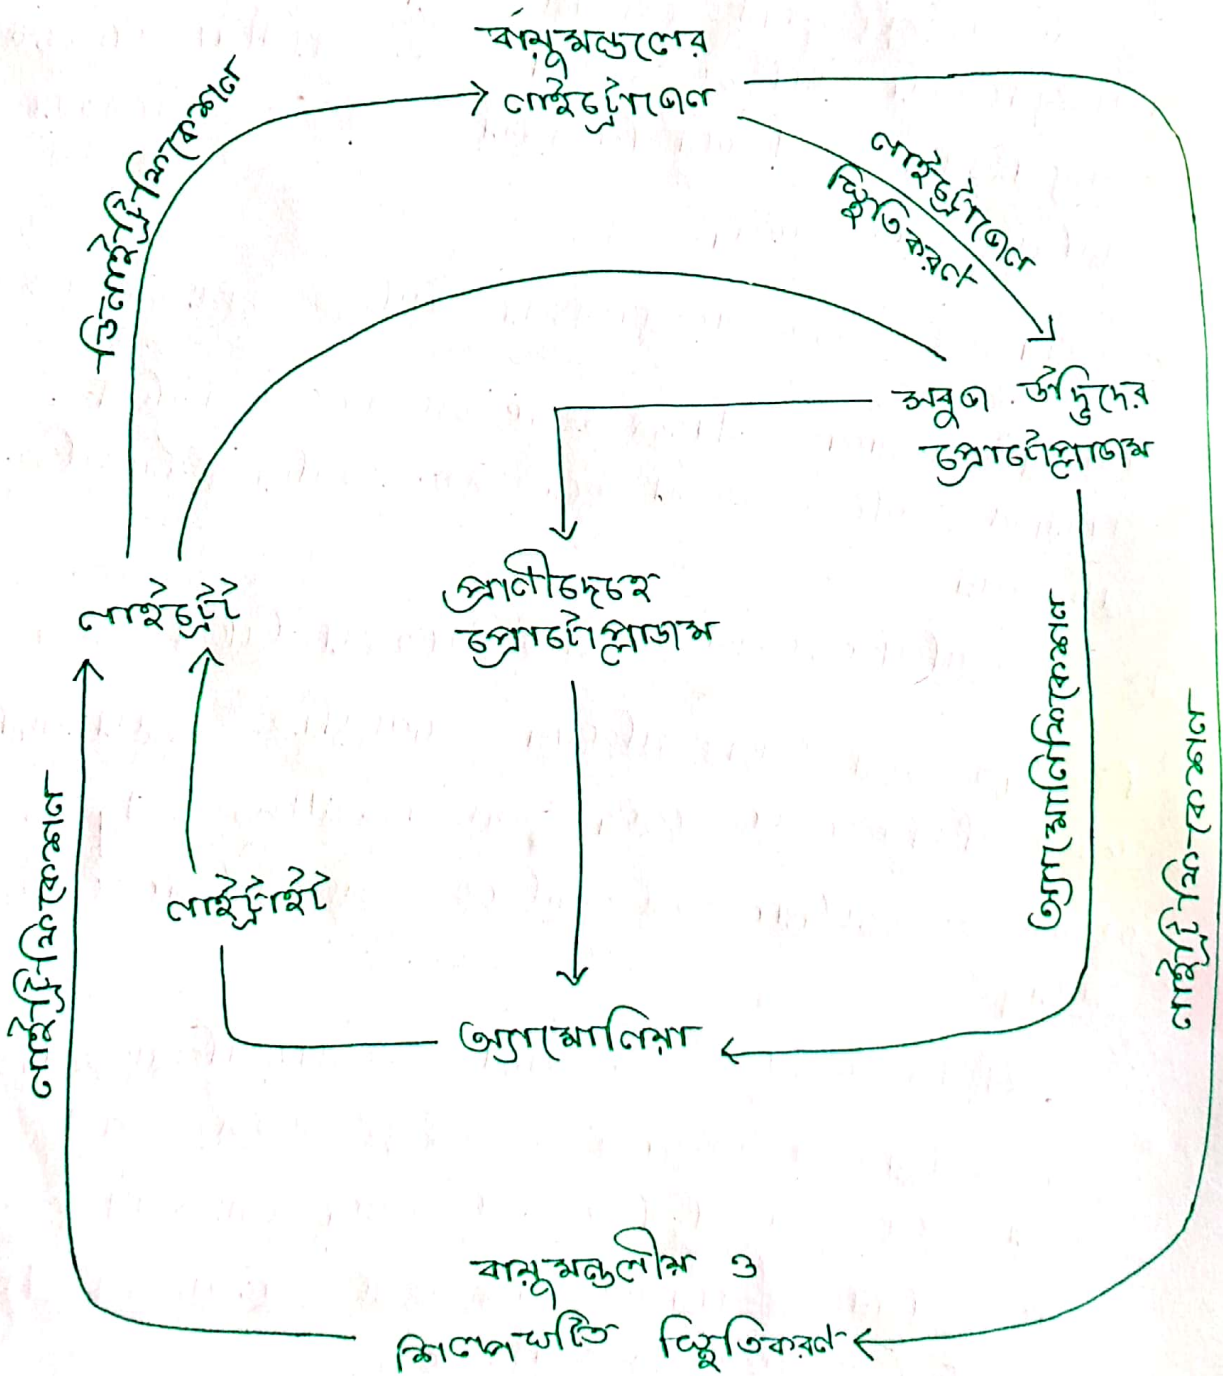 বায়ুমন্ডলের
নাইট্রোজেন
ডিনাইট্রিফিকেশন
নাইট্রোজেন
স্থিতিকরণ
সবুজ উদ্ভিদের
প্রোটোপ্লাজম
নাইট্রেট
প্রাণীদেহে
প্রোটোপ্লাজম
অ্যামোনিফিকেশন
নাইট্রিফিকেশন
নাইট্রাইট
নাইট্রিফিকেশন
অ্যামোনিয়া
বায়ুমন্ডলীয় ও
শিল্পঘটিত স্থিতিকরণ